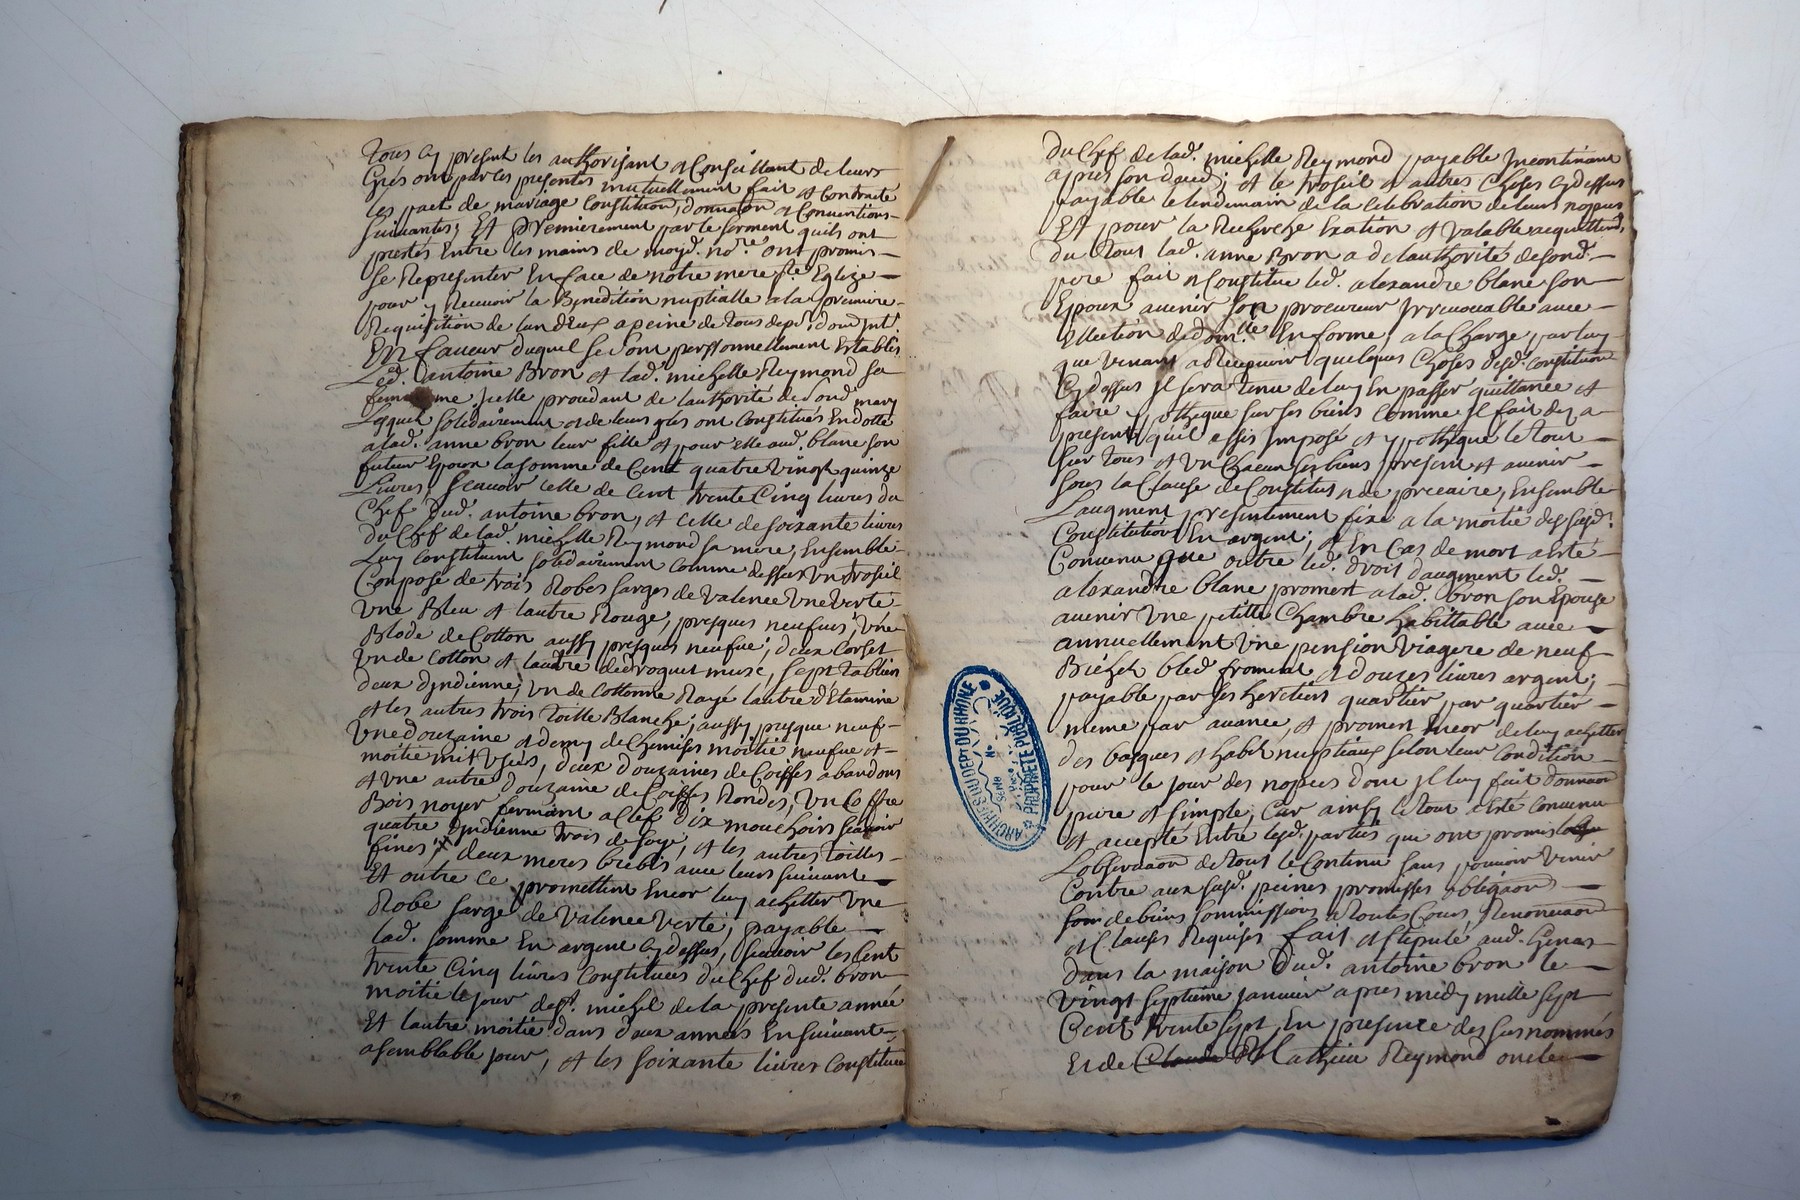 tous cy present les authorisant et Conseillant de leurs
Grés ont par ces presentes mutuellement fait et Contracté
les pact de mariage Constitution, donnaon et Conventions
suivantes, Et Premierement par le serment quils ont
prestés Entre les mains de moyd. nore. ont promis
se Representer En face de notre mere ste Eglize
pour y Recevoir la Benedition nuptialle a la premiere
Requisition de lun deux a peine de tous depd. dom int.
En faveur duquel se sont perssonnellement Establis
Led. antoine Bron et lad. michelle Reymond sa
femme icelle procedant de lauthorité de sond mary
Lesquels solidairement et de leurs grés ont Constitués En dotte
a lad. anne bron leur fille et pour elle aud. blanc son
futeur Epoux la somme de Cent quatre vingt quinze
Livres, scavoir celle de Cent trente Cinq livres du
Chef dud. antoine bron, et celle de soixante livres
du Chef de lad. michelle Reymond sa mere, Ensemble
Luy Constituent solidairement comme dessus un troseil
Composé de trois Robes sarges de Valence une verte
une Bleu et lautre Rouge, presques neufves, une
Blode de Cotton aussy presques neufve, deux Corset
un de Cotton et lautre de droguet musc, sept tabliers
deux djndienne, un de Cottonne Rayé lautre d'Etamine
et les autres trois toille Blanche, aussy presque neuf
une douzaine et demy de Chemises moitié neufve et
moitié mit usées, deux douzaines de Coiffes abandons
et une autre douzaine de Coiffes Rondes, un Coffre
Bois noyer fermant a Clef dix mouchoirs scavoir
quatre djndienne trois de soye, et les autres toilles
fines, x deux meres brebis avec leurs suivant
Et outre ce promettent Encor luy achetter une
Robe sarge de Valence verte, payable
lad. somme En argent cy dessus, scavoir les Cent
trente Cinq livres Constituées du Chef dud. bron
moitié le jour de st. michel de la presente année
Et lautre moitié dans deux années En suivant
a semblable jour, et les soixante livres Constituée
du Chef de lad. michelle Reymond payable Jncontinant
apres son deced; et le troseil et autres Choses cy dessus
payable le lendemain de la Celebration de leurs nopces
Et pour la Recherche Exation et valable acquittem.
du tout lad. anne Bron a de lauthorité de sond.
pere fait et Constitue led. alexandre blanc son
Epoux avenir son procureur Jrrevocable avec
Ellection de domlle En forme, a la Charge par luy
que venant a Recepvoir quelques Choses desd. Constitution
cy dessus Jl sera tenu de luy En passer quittance et
faire ypotheque sur ses biens Comme Jl fait dez a
present quil assis Jmposé et ypothequé le tout
sur tous et un Chacun ses biens present et avenir
sous la Clause de Constitus nde precaire, Ensemble
Laugment presentement fixé a la moitié des susd.
Constitution En argent; et En Cas de mort a Eté
Convenu que outre led. droit daugment led.
alexandre blanc promet a lad. bron son Epouze
avenir une petitte Chambre habittable avec
annuellement une pension viagere de neuf
Bichet bled froment et douzes livres argent;
payable par ses heritiers quartier par quartier
meme par avance, et promet Encor de luy achetter
des bagues et habit nuptiaux selon leur Condition
pour le jour des nopces dont Jl luy fait donnaon
pure et simple, Car ainsy le tout a Eté Convenu
et accepté Entre lesd. parties qui ont promis
Lobservaon de tout le Contenu sans pouvoir venir
Contre aux susd. peines promesses obligaon
de biens sommissions a toutes Cours, Renonciaon
et Clauses Requises fait et stipulé aud. Genas
dans la maison dud. antoine bron le
vingt septieme janvier apres midy mille sept
Cent trente sept, En presence des susnommés
Et de Claude Mathieu Reymond oncle
ARCHIVES DU DEPT DU RHONE
PROPRIÉTÉ PUBLIQUE